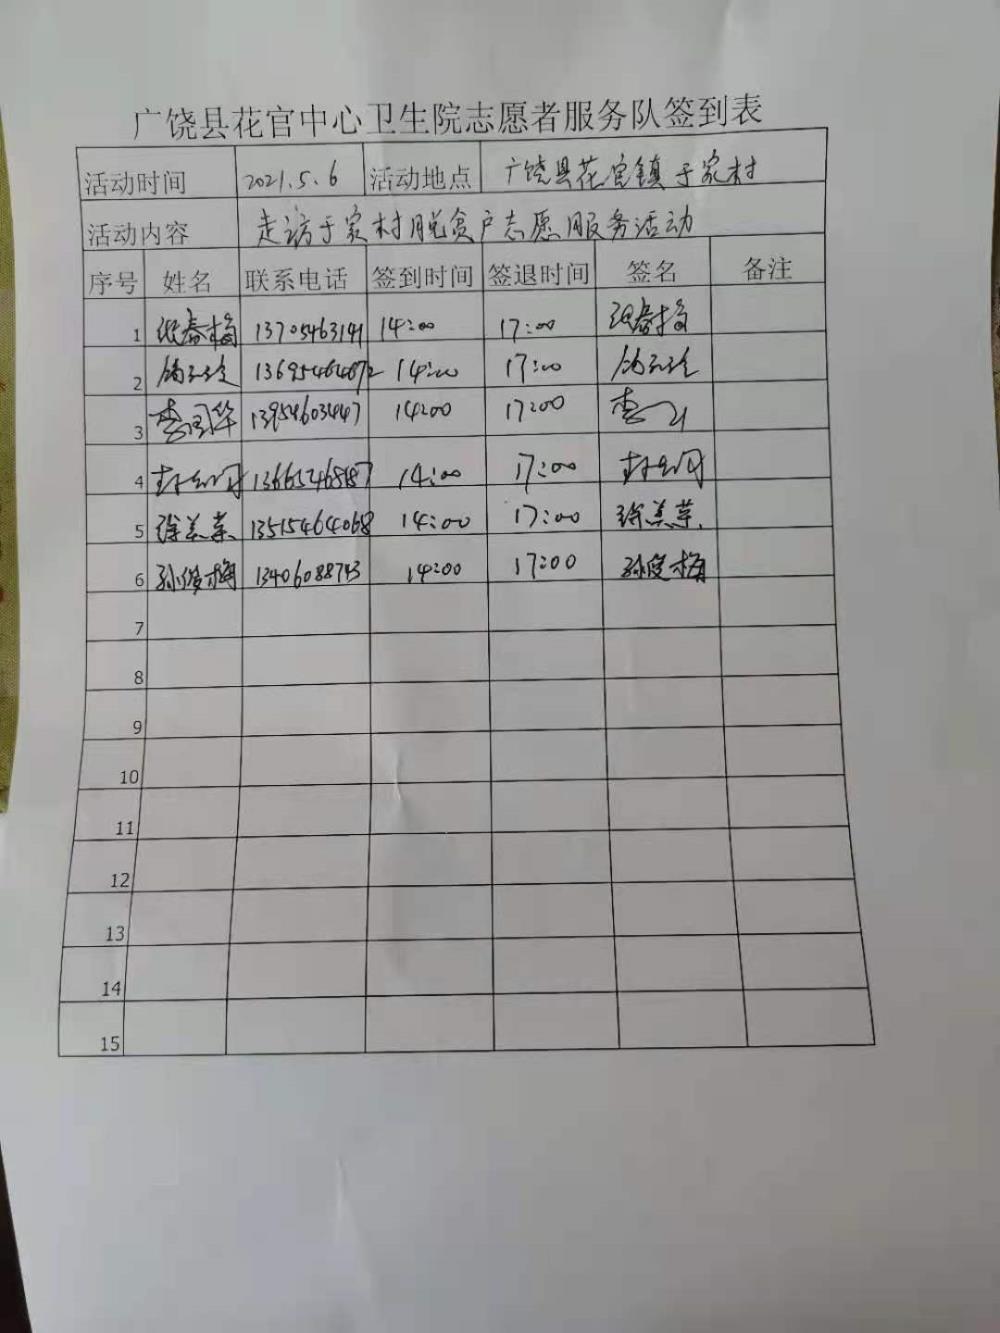 广饶县花官中心卫生院志愿者服务队签到表
活动时间 2021.5.6 活动地点 广饶县花官镇于家村
活动内容 走访于家村脱贫户志愿服务活动
序号 姓名 联系电话 签到时间 签退时间 签名 备注
1 张春梅 13705463141 14:00 17:00 张春梅
2 13695464672 14:00 17:00
3 李国华 13954603447 14:00 17:00 李
4 13665468187 14:00 17:00
5 徐美荣 13515464068 14:00 17:00 徐美荣
6 孙俊梅 13406088743 14:00 17:00 孙俊梅
7
8
9
10
11
12
13
14
15